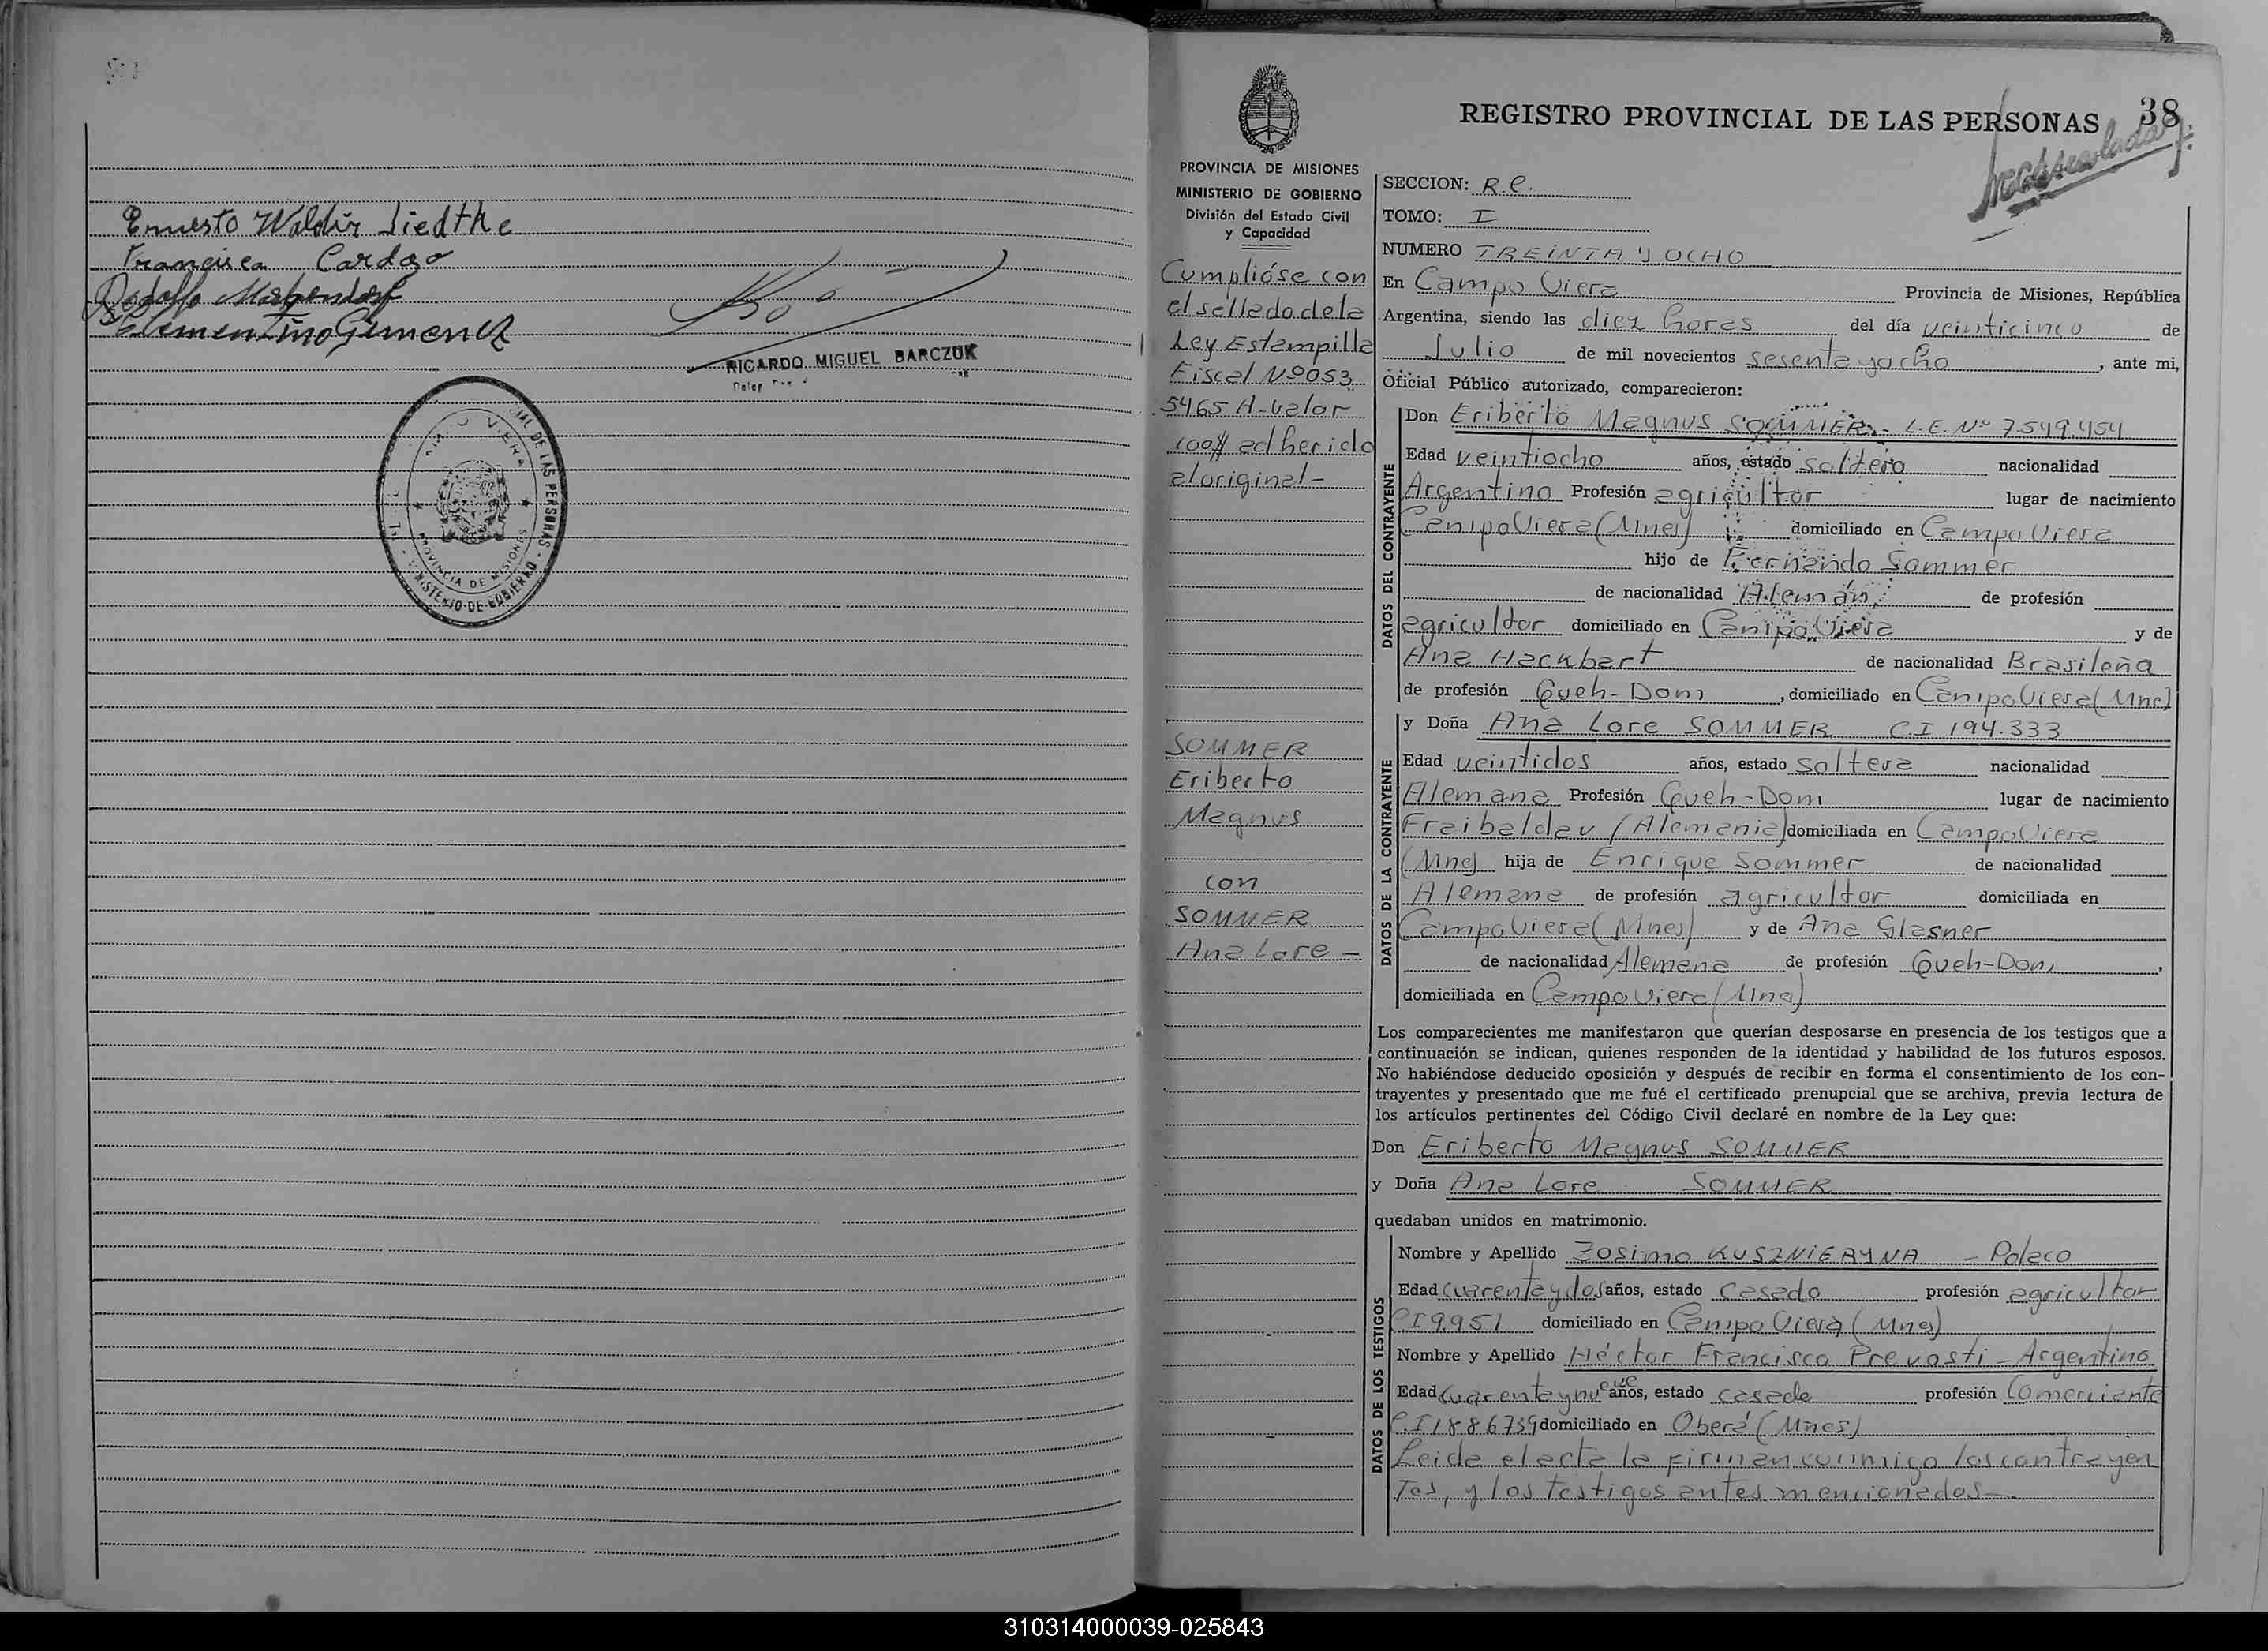 Ernesto Waldir Liedtke
Francisca Cardozo
Rodolfo
Clementino Gimenez
RICARDO MIGUEL BARCZUK
CIAL DE LAS PERSONAS - MINISTERIO DE GOBIERNO
VIERA
PROVINCIA DE MISIONES
REGISTRO PROVINCIAL DE LAS PERSONAS 38
PROVINCIA DE MISIONES
MINISTERIO DE GOBIERNO
División del Estado Civil
y Capacidad
Cumplióse con
el sellado de la
Ley Estampilla
Fiscal Nº 053
5465 A-valor
100$ adherido
al original-
SOMMER
Eriberto
Magnus
con
SOMMER
Ana Lore -
SECCION: R.C.
TOMO: I
NUMERO TREINTA Y OCHO
En Campo Viera Provincia de Misiones, República
Argentina, siendo las diez horas del día veinticinco de
Julio de mil novecientos sesenta y ocho, ante mi,
Oficial Público autorizado, comparecieron:
DATOS DEL CONTRAYENTE
Don Eriberto Magnus SOMMER.- L.E. Nº 7.549.454
Edad veintiocho años, estado soltero nacionalidad
Argentino Profesión agricultor lugar de nacimiento
Campo Viera (Mnes) domiciliado en Campo Viera
hijo de Fernando Sommer
de nacionalidad Alemán, de profesión
agricultor domiciliado en Campo Viera y de
Ana Hackbart de nacionalidad Brasileña
de profesión Queh-Dom, domiciliado en Campo Viera (Mnes)
DATOS DE LA CONTRAYENTE
y Doña Ana Lore SOMMER C.I 194.333
Edad veintidos años, estado soltera nacionalidad
Alemana Profesión Queh-Dom lugar de nacimiento
Fraibaldau (Alemania) domiciliada en Campo Viera
(Mnes) hija de Enrique Sommer de nacionalidad
Alemana de profesión agricultor domiciliada en
Campo Viera (Mnes) y de Ana Glasner
de nacionalidad Alemana de profesión Queh-Dom,
domiciliada en Campo Viera (Mnes)
Los comparecientes me manifestaron que querían desposarse en presencia de los testigos que a
continuación se indican, quienes responden de la identidad y habilidad de los futuros esposos.
No habiéndose deducido oposición y después de recibir en forma el consentimiento de los con-
trayentes y presentado que me fué el certificado prenupcial que se archiva, previa lectura de
los artículos pertinentes del Código Civil declaré en nombre de la Ley que:
Don Eriberto Magnus SOMMER
y Doña Ana Lore SOMMER
quedaban unidos en matrimonio.
DATOS DE LOS TESTIGOS
Nombre y Apellido Zosimo KUSZNIERYNA - Polaco
Edad cuarenta y dos años, estado Casado profesión agricultor
C I 9.951 domiciliado en Campo Viera (Mnes)
Nombre y Apellido Héctor Francisco Prevosti - Argentino
Edad cuarenta y nueve años, estado casado profesión Comerciante
C.I 1886739 domiciliado en Oberá (Mnes)
Leida el acta la firman conmigo los contrayen
tes, y los testigos antes mencionados
310314000039-025843